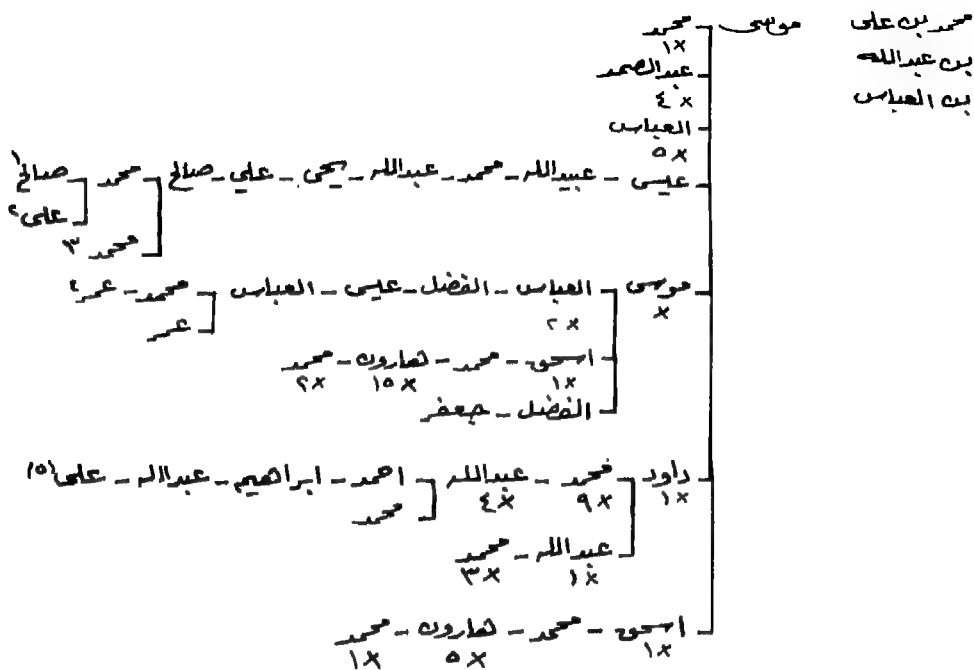 محمد بن على موسى محمد
بن عبدالله ×١
بن العباس عبدالصمد
×٤
العباس
×٥
عيسى - عبيدالله - محمد - عبدالله - يحى - علي - صالح محمد صالح ١
على ٢
محمد ٣
موسى العباس - الفضل - عيسى - العباس محمد - عمر ٤
× ×٢ عمر
اسحق - محمد - هارون - محمد
×١ ×١٥ ×٢
الفضل - جعفر
داود محمد - عبدالله احمد - ابراهيم - عبدالله - على (٥)
×١ ×٩ ×٤ محمد
عبدالله - محمد
×١ ×٣
اسحق - محمد - هارون - محمد
×١ ×٥ ×١